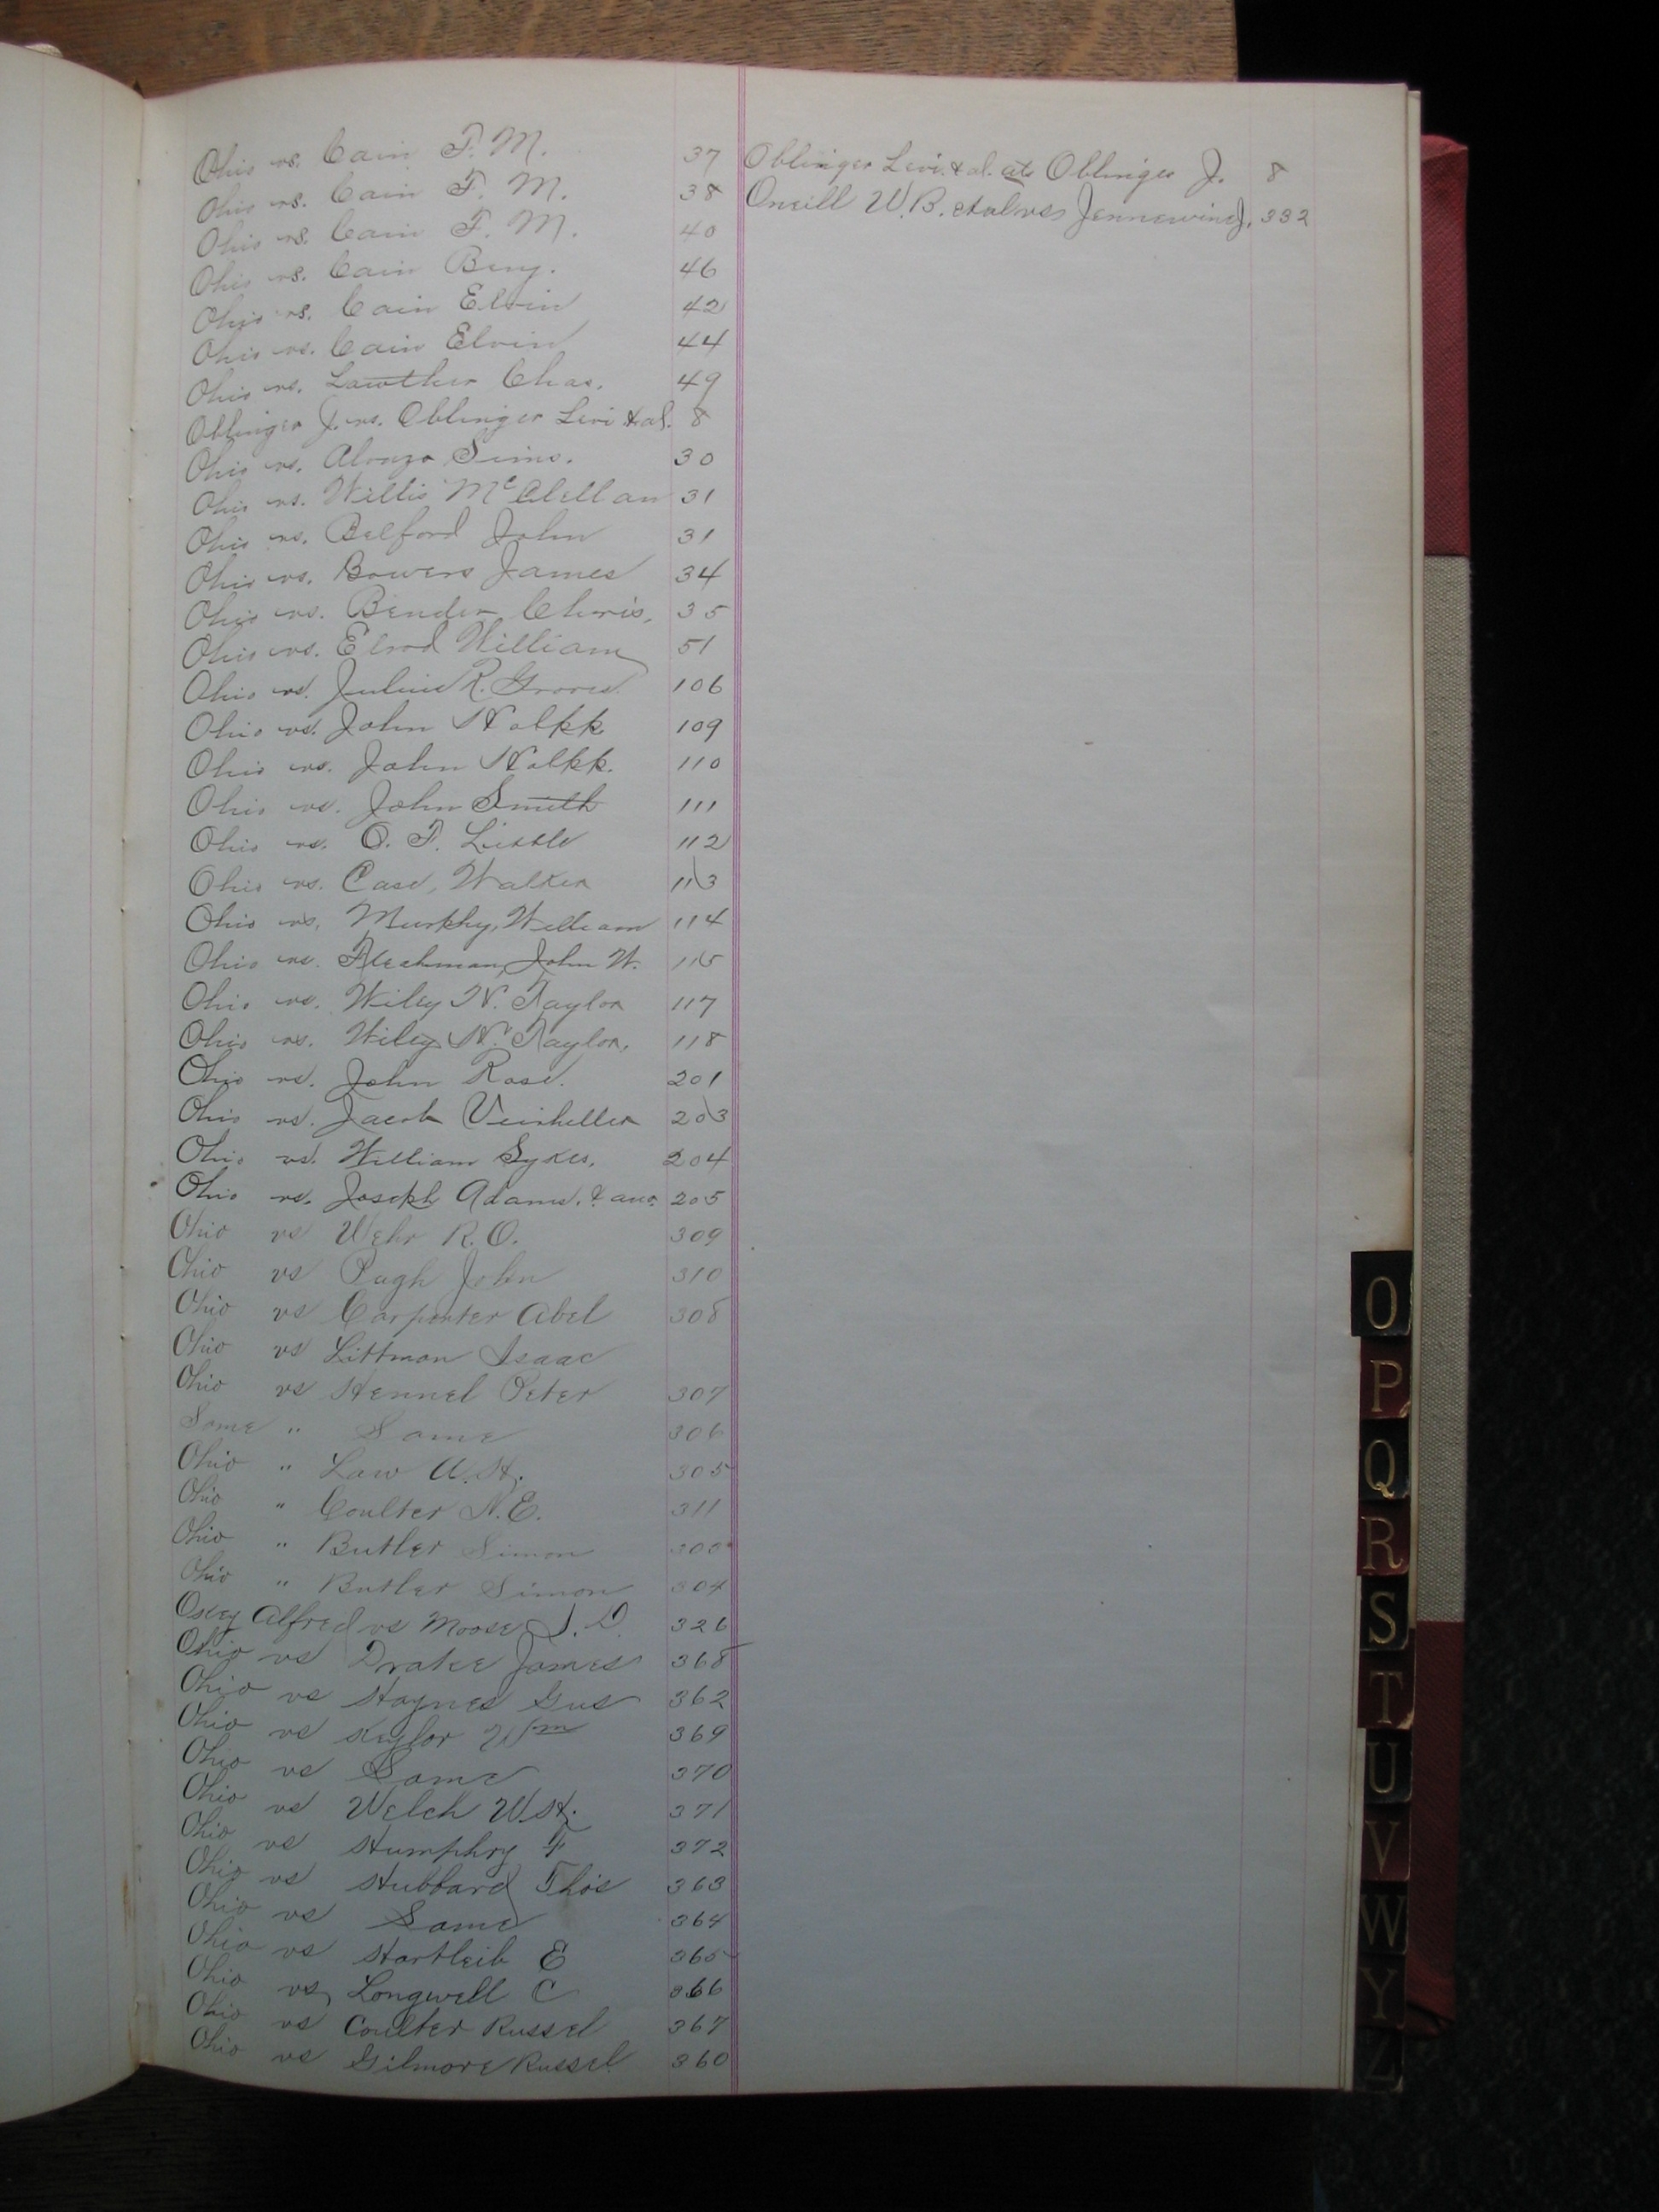 Ohio vs. Cain F. M. 37
Ohio vs. Cain F. M. 38
Ohio vs. Cain F. M. 40
Ohio vs. Cain Benj. 46
Ohio vs. Cain Elvin 42
Ohio vs. Cain Elvin 44
Ohio vs. Lawther Chas. 49
Oblinger J. vs. Oblinger Levi &al. 8
Ohio vs. Alonzo Sims. 30
Ohio vs. Willis McClellan 31
Ohio vs. Belford John 31
Ohio vs. Bowers James 34
Ohio vs. Bender Chris. 35
Ohio vs. Elrod William 51
Ohio vs. Julius R. Groves. 106
Ohio vs. John 109
Ohio vs. John 110
Ohio vs. John Smith 111
Ohio vs. O. F. Little 112
Ohio vs. Case, Walker 113
Ohio vs. Murphy, William 114
Ohio vs. John W. 115
Ohio vs. Wiley N. Taylor 117
Ohio vs. Wiley N. Taylor, 118
Ohio vs. John Rose. 201
Ohio vs. Jacob 203
Ohio vs. William Sykes. 204
Ohio vs. Joseph Adams, & ano. 205
Ohio vs Wehr R. O. 309
Ohio vs Pugh John 310
Ohio vs Carpenter Abel 308
Ohio vs Littman Isaac
Ohio vs Hennel Peter 307
Same " Same 306
Ohio " Law W. H. 305
Ohio " Coulter N. E. 311
Ohio " Butler Simon
Ohio " Butler Simon 304
Alfred vs Moose J. D. 326
Ohio vs Drake James 368
Ohio vs Haynes Gus 362
Ohio vs Keylor Wm 369
Ohio vs Same 370
Ohio vs Welch W. H. 371
Ohio vs Humphry F 372
Ohio vs Hubbard Thos 363
Ohio vs Same 364
Ohio vs Hartleib E 365
Ohio vs Longwell C 366
Ohio vs Coulter Russel 367
Ohio vs Gilmore Russel 360
Oblinger Levi &al. ats Oblinger J. 8
Oneill W. B. etal vs Jennewine J. 332
O
P
Q
R
S
T
U
V
W
Y
Z